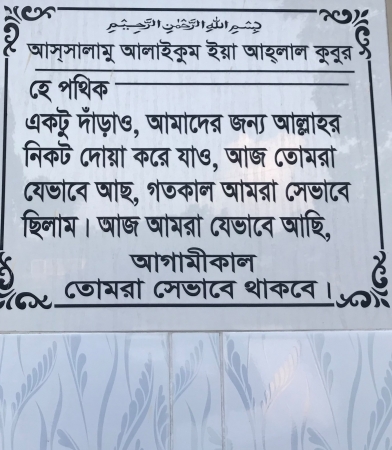 بسم الله الرحمن الرحيم
আস্সালামু আলাইকুম ইয়া আহ্লাল কুবুর
হে পথিক
একটু দাঁড়াও, আমাদের জন্য আল্লাহর
নিকট দোয়া করে যাও, আজ তোমরা
যেভাবে আছ, গতকাল আমরা সেভাবে
ছিলাম। আজ আমরা যেভাবে আছি,
আগামীকাল
তোমরা সেভাবে থাকবে।